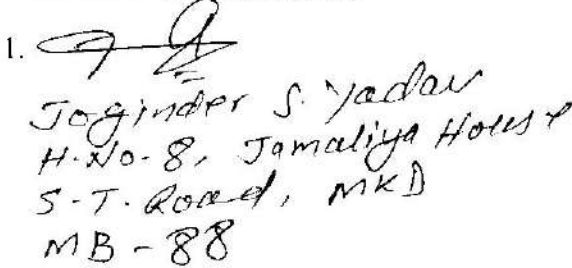 1.
Joginder S. Yadav
H.No-8, Jamaliya House
S-T. Road, MKD
MB-88